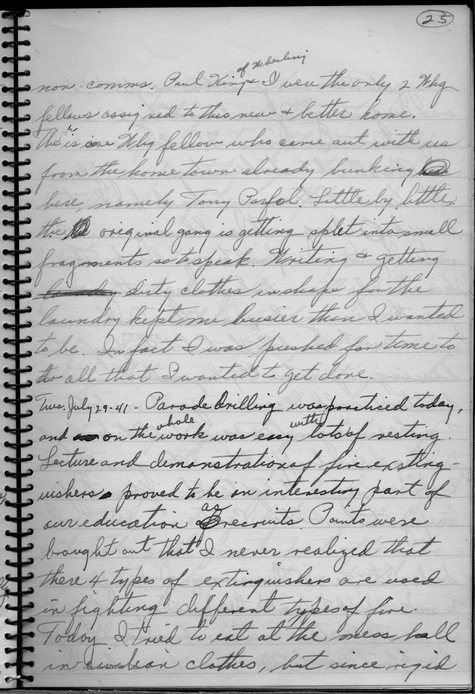 23
non-comms. Paul King of Wheeling & I were the only 2 Whg
fellows assigned to this new & better home.
There is one Whg fellow who came out with us
from the home town already bunking
here namely Tony Parfol. Little by little
the original gang is getting split into small
fragments so to speak. Writing & getting
dirty clothes in shape for the
laundry kept me busier than I wanted
to be. In fact I was pushed for time to
do all that I wanted to get done.
Tues. July 29-41 - Parade drilling was practiced today,
and on the whole work was easy with lots of resting.
Lecture and demonstration of fire exting-
uishers proved to be an interesting part of
our education as recruits Points were
brought out that I never realized that
there 4 types of extinguishers are used
in fighting different types of fire.
Today I tried to eat at the mess hall
in civilian clothes, but since rigid